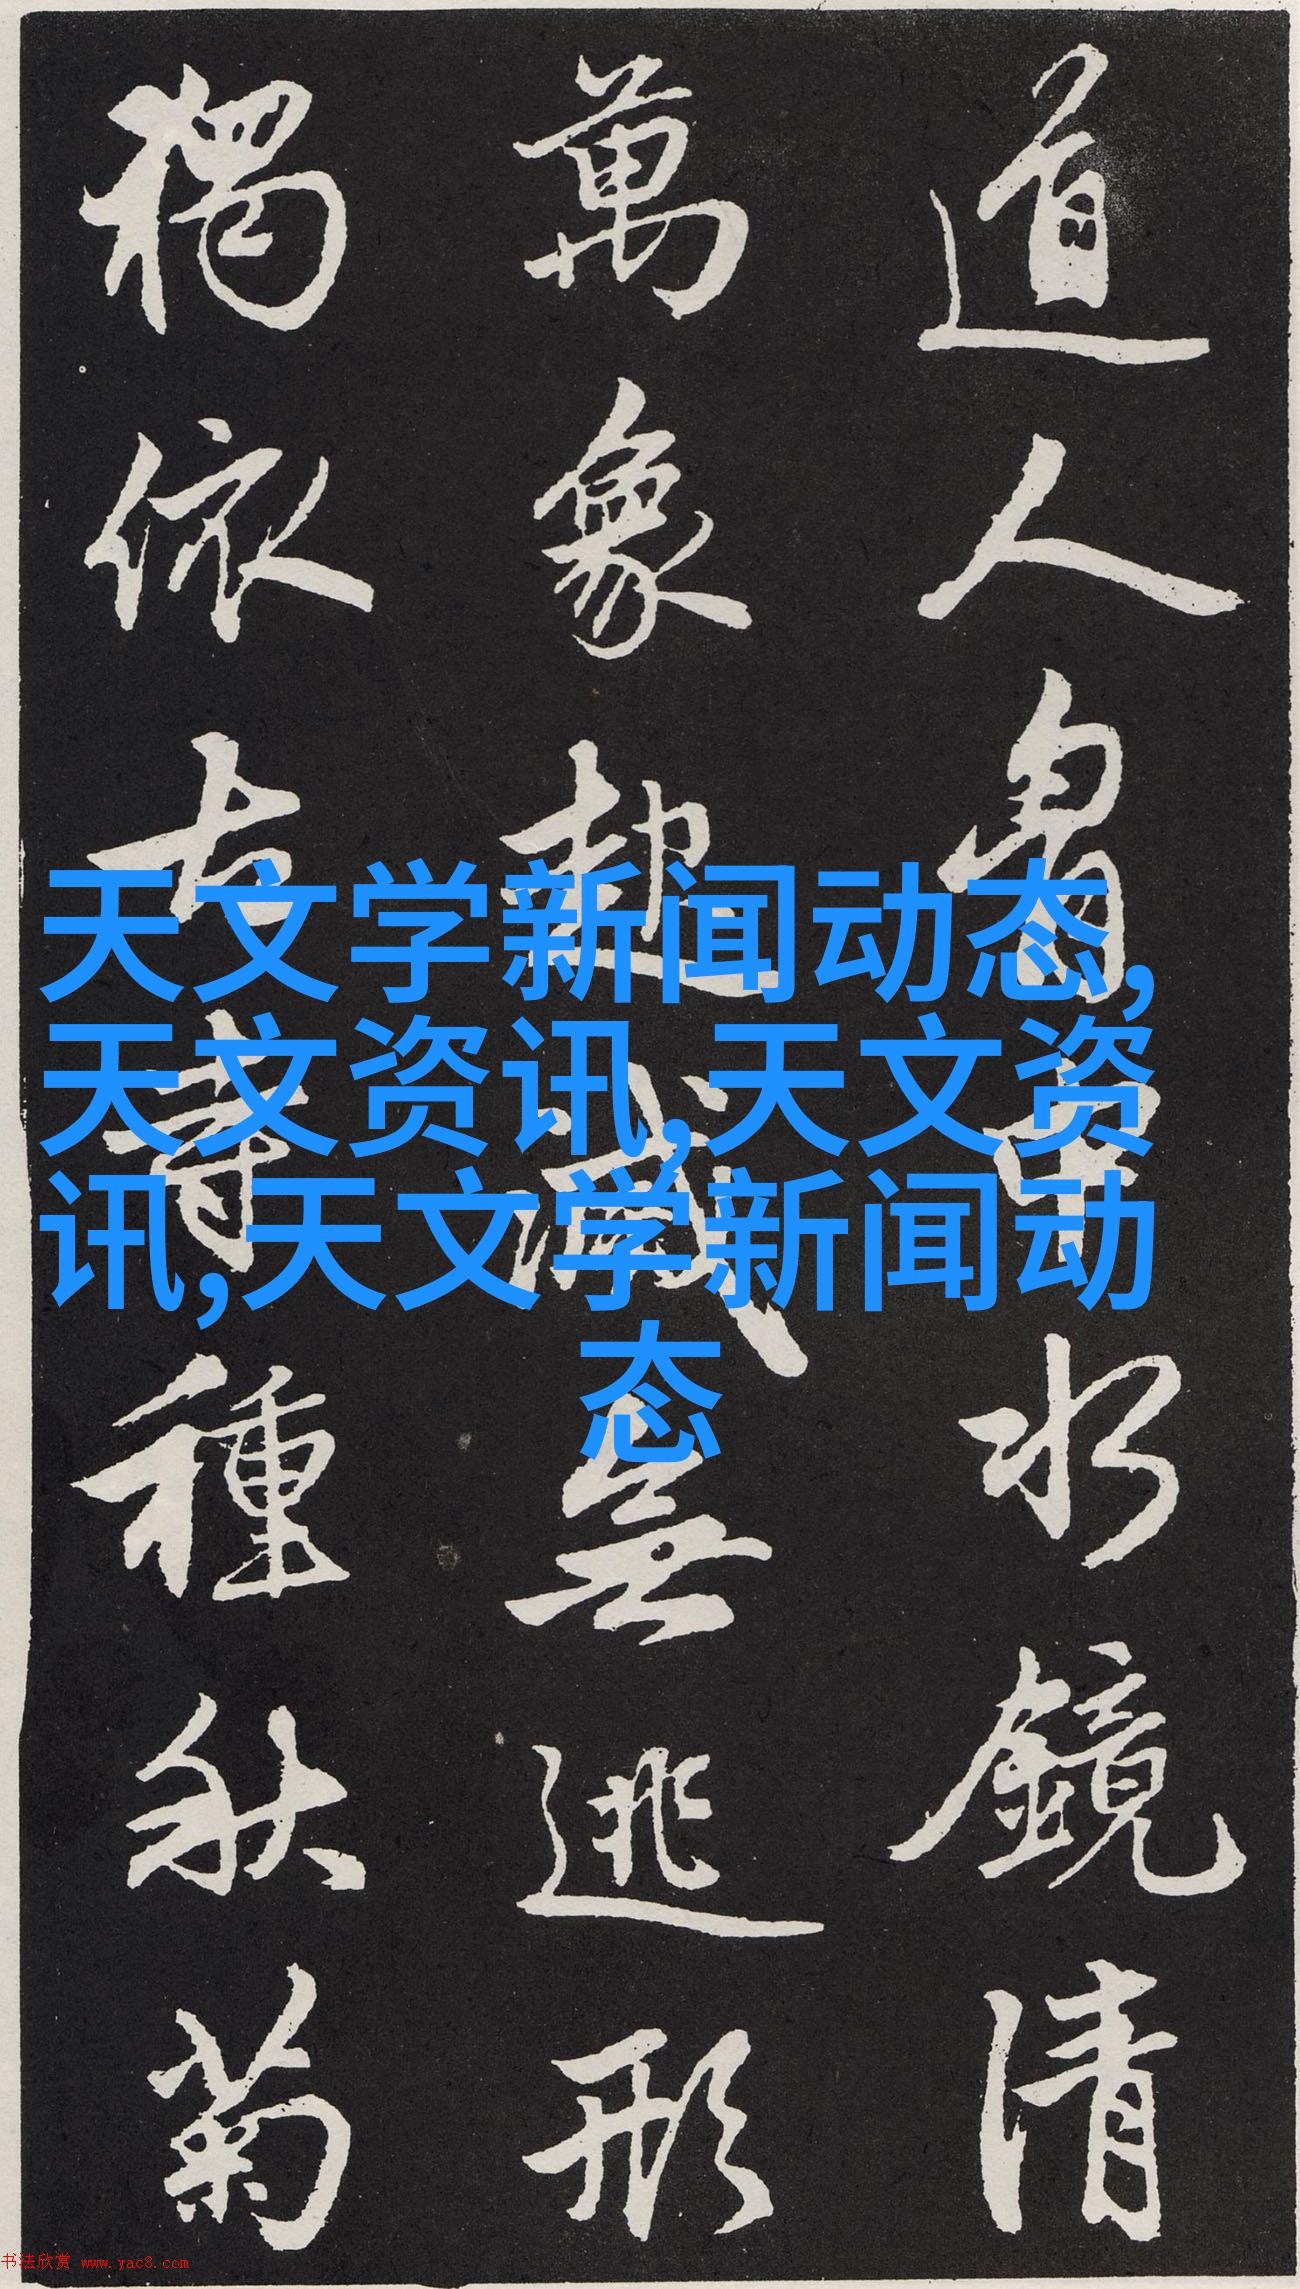 道人胷中水鏡清
萬象起滅無逃形
獨依古寺種秋菊
天文学新闻动态,
天文资讯,天文资
讯,天文学新闻动
态
书法欣赏 www.yac8.com